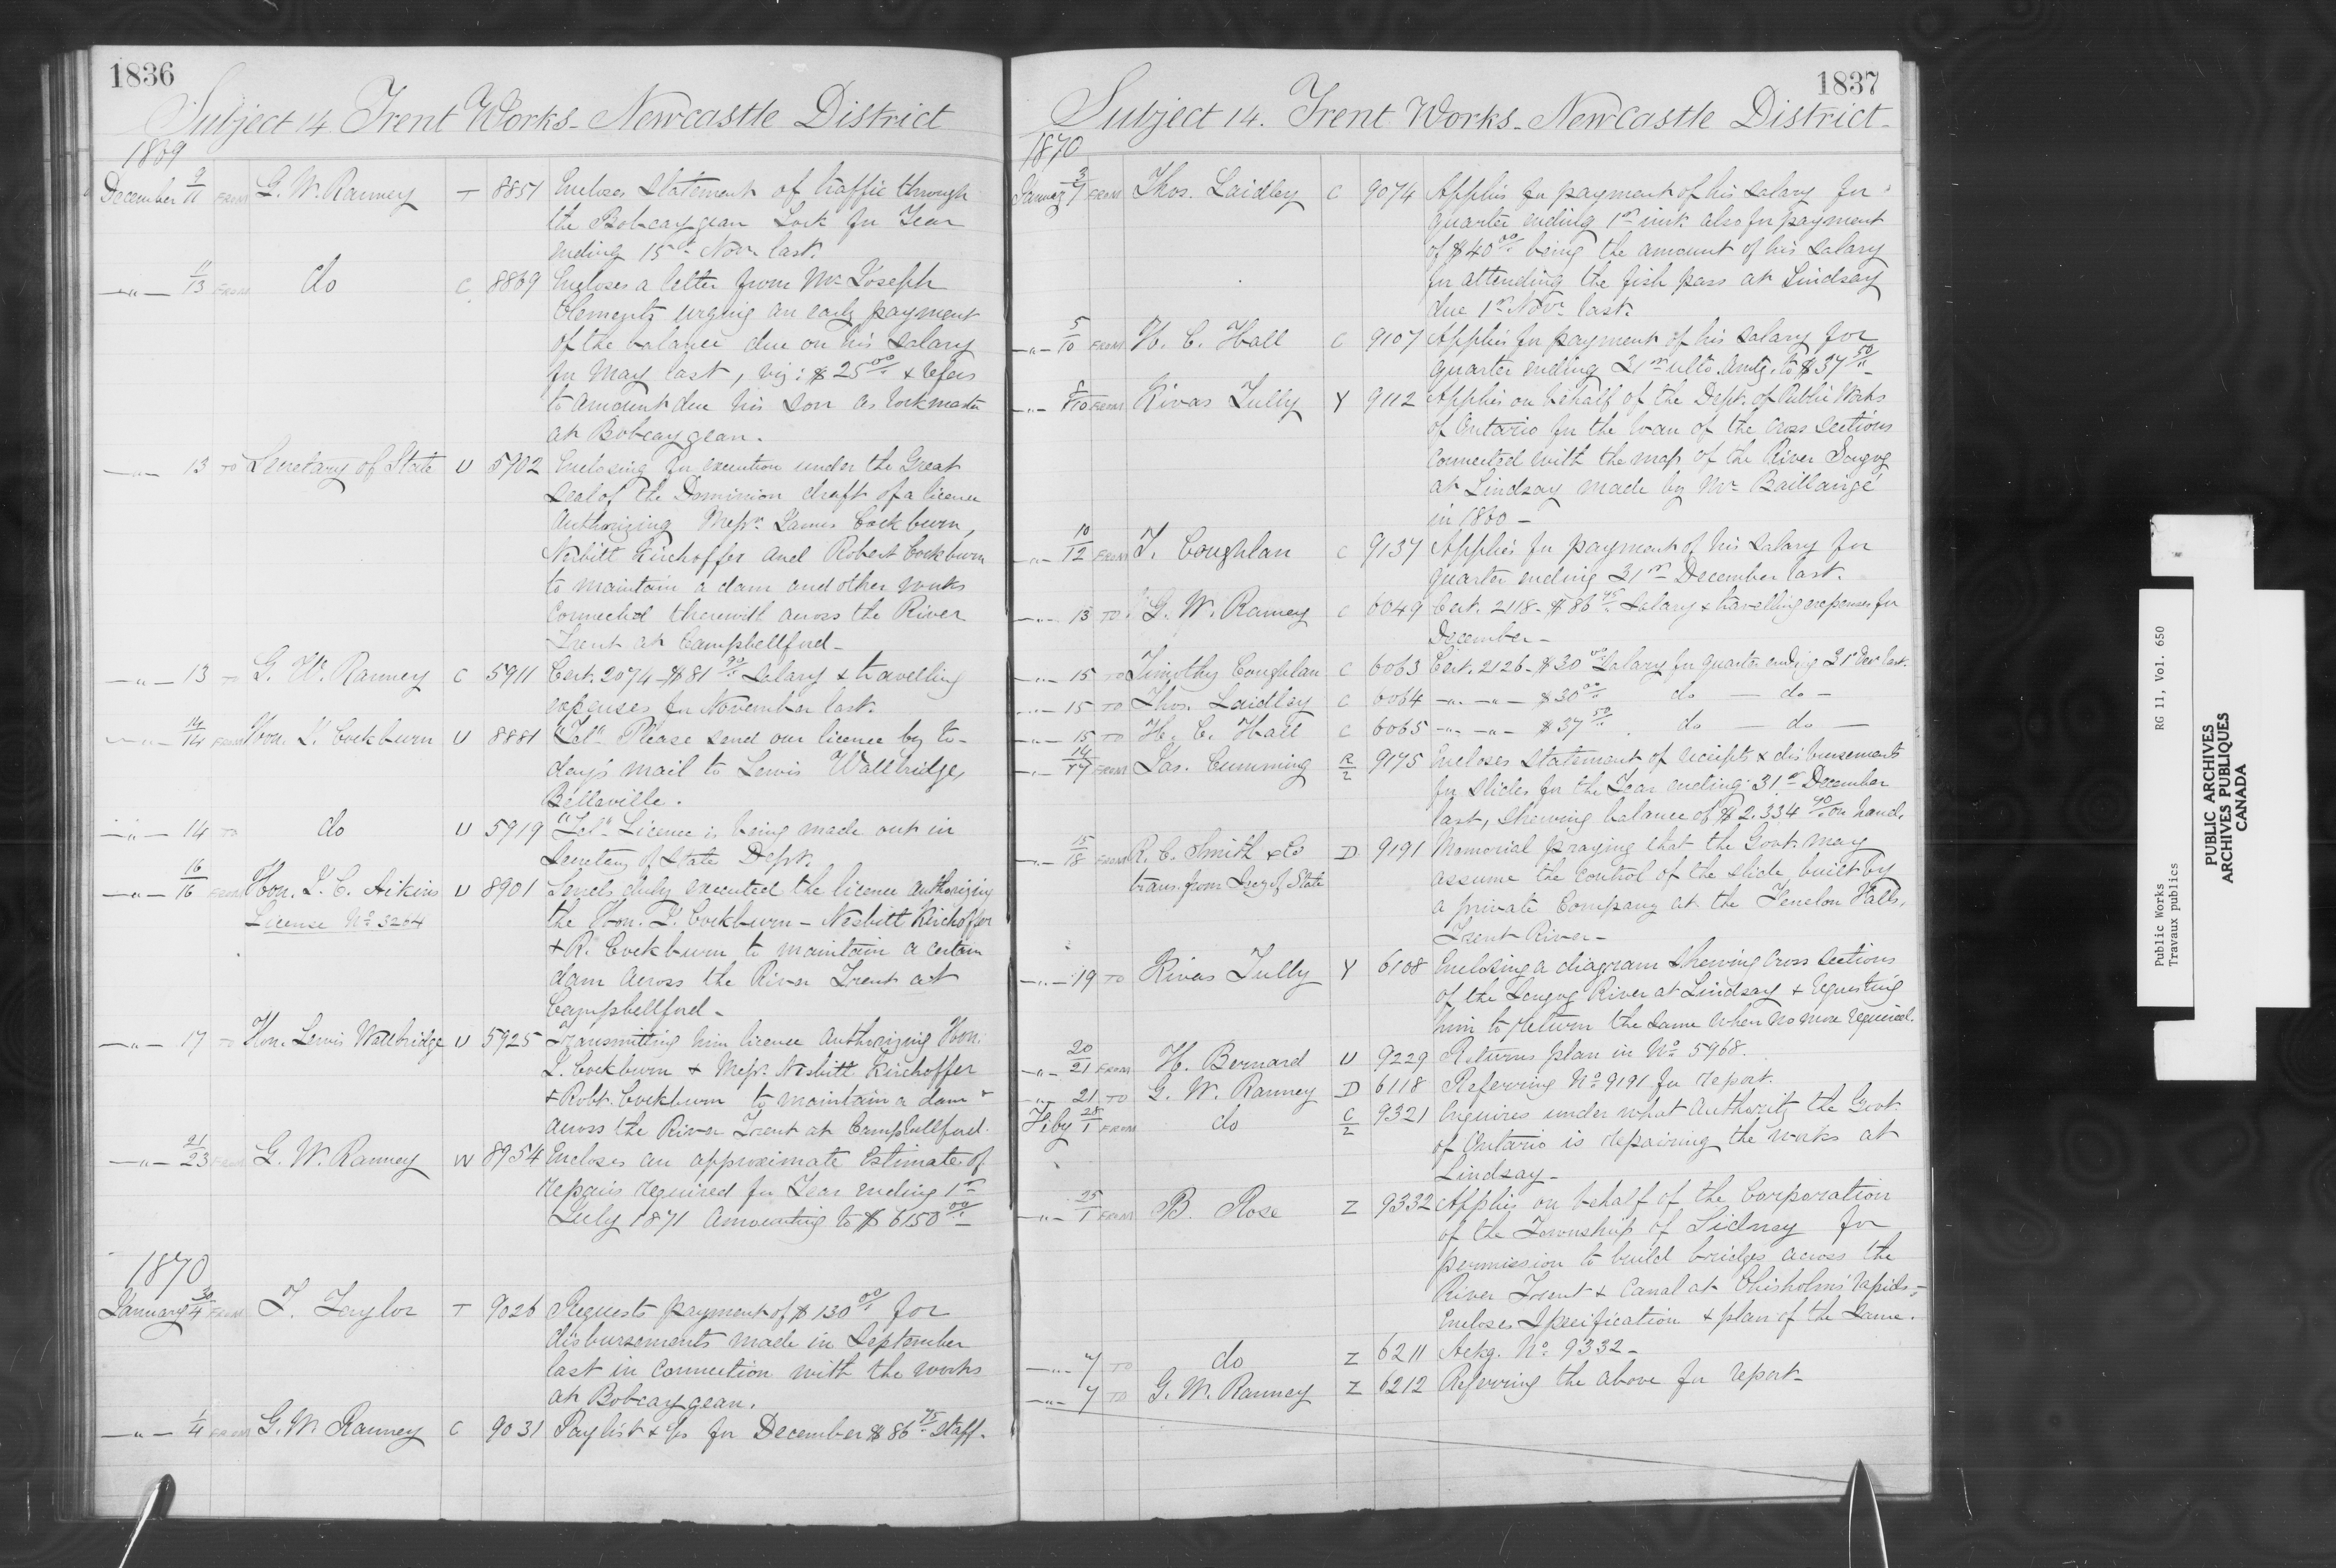 1836
Subject 14 Trent Works - Newcastle District
1869
December 9/11 FROM G. W. Ranney T 8851 Encloses statement of traffic through
the Bobcaygean Lock for Year
ending 15th Novr last.
—"— 11/13 FROM do C 8869 Encloses a letter from Mr Joseph
Clements urging an early payment
of the balance due on his salary
for May last, viz: $25 00/.. & refers
to amount due his son as lockmaster
at Bobcaygean.
—"— 13 TO Secretary of State U 5902 Enclosing for execution under the Great
Seal of the Dominion draft of a licence
Authorizing Messrs James Cockburn,
Nesbitt Kirchoffer and Robert Cockburn
to maintain a dam and other works
connected therewith across the River
Trent at Campbellford -
—"— 13 TO G. W. Ranney C 5911 Cert. 2074 - $81 90/.. Salary & travelling
expenses for November last.
—"— 14/14 FROM Hon. J. Cockburn U 8881 "Tel" Please send our licence by to-
day's mail to Lewis Wallbridge,
Belleville.
—"— 14 TO do U 5919 "Tel" Licence is being made out in
Secretary of State Dept.
—"— 16/16 FROM Hon. J. C. Aikins U 8901 Sends duly executed the licence authorizing
License No 3204
the Hon. J. Cockburn - Nesbitt Kirchoffer
& R. Cockburn to maintain a certain
dam across the River Trent at
Campbellford -
—"— 17 TO Hon. Lewis Wallbridge U 5925 Transmitting him licence Authorizing Hon.
J. Cockburn & Messrs Nesbitt Kirchoffer
& Robt. Cockburn to maintain a dam
across the River Trent at Campbellford.
—"— 21/23 FROM G. W. Ranney W 8954 Encloses an approximate Estimate of
repairs required for Year ending 1st
July 1871 amounting to $6150 00/..
1870
January 30/4 FROM T. Taylor T 9026 Requests payment of $130 00/.. for
disbursements made in September
last in connection with the works
at Bobcaygean.
—"— 1/4 FROM G. W. Ranney C 9031 Paylist & for December $86 75/.. Staff.
1837
Subject 14. Trent Works - Newcastle District -
1870
January 3/7 FROM Thos. Laidley C 9074 Applies for payment of his salary for
quarter ending 1st inst. also for payment
of $40 00/.. being the amount of his salary
for attending the fish pass at Lindsay
due 1st Novr last.
—"— 5/10 FROM H. C. Hall C 9107 Applies for payment of his salary for
quarter ending 31st ulto. Amtg. to $37 50/..
—"— 8/10 FROM Kivas Tully Y 9112 Applies on behalf of the Dept. of Public Works
of Ontario for the loan of the cross sections
connected with the map of the River Scugog
at Lindsay made by Mr Baillairgé
in 1860 -
—"— 10/12 FROM T. Coughlan C 9137 Applies for payment of his salary for
quarter ending 31st December last.
—"— 13 TO G. W. Ranney C 6049 Cert. 2118 - $86 75/.. Salary & travelling expenses for
December -
—"— 15 TO Timothy Coughlan C 6063 Cert. 2126 - $30 00/.. Salary for quarter ending 31st Dec last.
—"— 15 TO Thos. Laidley C 6064 —"— —"— $30 00/.. do — do —
—"— 15 TO H. C. Hall C 6065 —"— —"— $37 50/.. do — do —
—"— 14/17 FROM Jas. Cumming R/2 9175 Encloses statement of receipts & disbursements
for slides for the Year ending 31st December
last, shewing balance of $2,334 90/.. on hand.
—"— 15/18 FROM R. C. Smith & Co D 9191 Memorial praying that the Govt. may
trans. from Secy of State
assume the control of the slide, built by
a private Company at the Fenelon Falls,
Trent River -
—"— 19 TO Kivas Tully Y 6108 Enclosing a diagram shewing cross sections
of the Scugog River at Lindsay & requesting
him to return the same when no more required.
—"— 20/21 FROM H. Bernard U 9229 Returns plan in No 5968.
—"— 21 TO G. W. Ranney D 6118 Referring No 9191 for report.
Feby 28/1 FROM do C/2 9321 Enquires under what Authority the Govt.
of Ontario is repairing the works at
Lindsay -
—"— 25/1 FROM B. Rose Z 9332 Applies on behalf of the Corporation
of the Township of Sidney for
permission to build bridges across the
River Trent & Canal at Chisholms' rapids -
Encloses Specification & plan of the same.
—"— 7 TO do Z 6211 Ackg. No 9332 -
—"— 7 TO G. W. Ranney Z 6212 Referring the above for report -
Public Works RG 11, Vol. 650
Travaux publics
PUBLIC ARCHIVES
ARCHIVES PUBLIQUES
CANADA